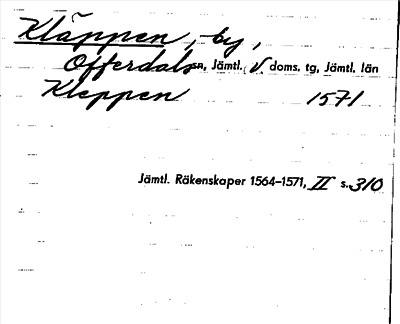 Kläppen, by,
Offerdals sn, Jämtl. V doms. tg, Jämtl. län
Kleppen 1571
Jämtl. Räkenskaper 1564–1571, II s. 310